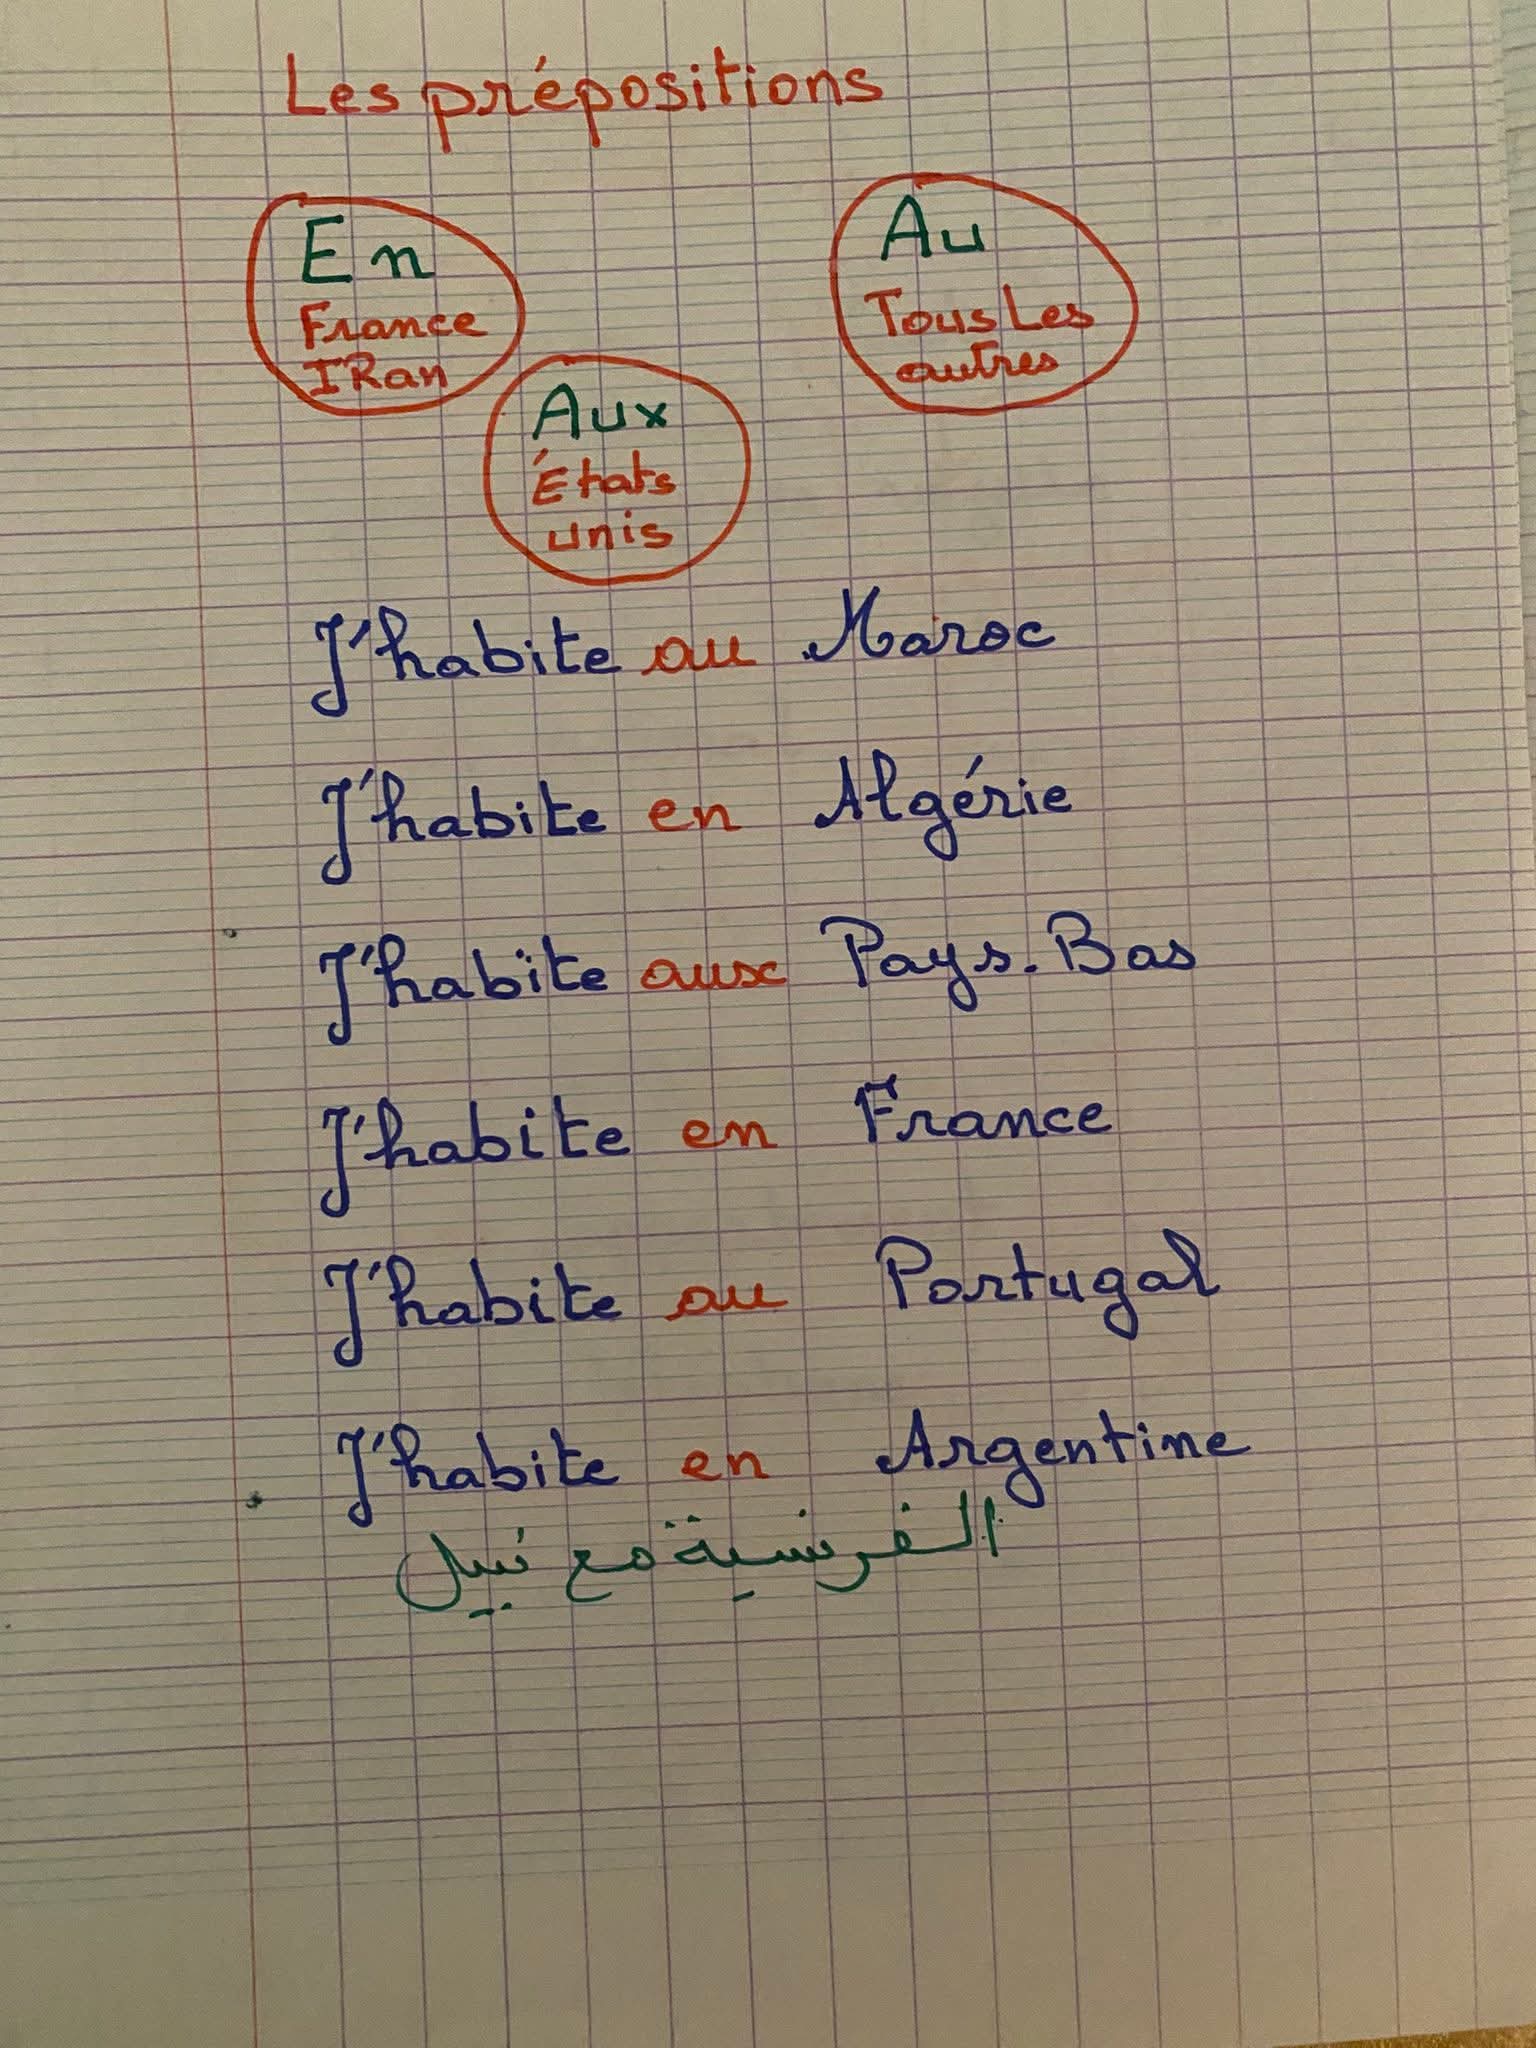 Les prépositions
En
France
IRan
Au
Tous Les
autres
Aux
États
unis
J'habite au Maroc
J'habite en Algérie
J'habite aux Pays-Bas
J'habite en France
J'habite au Portugal
J'habite en Argentine
الفرنسية مع نبيل